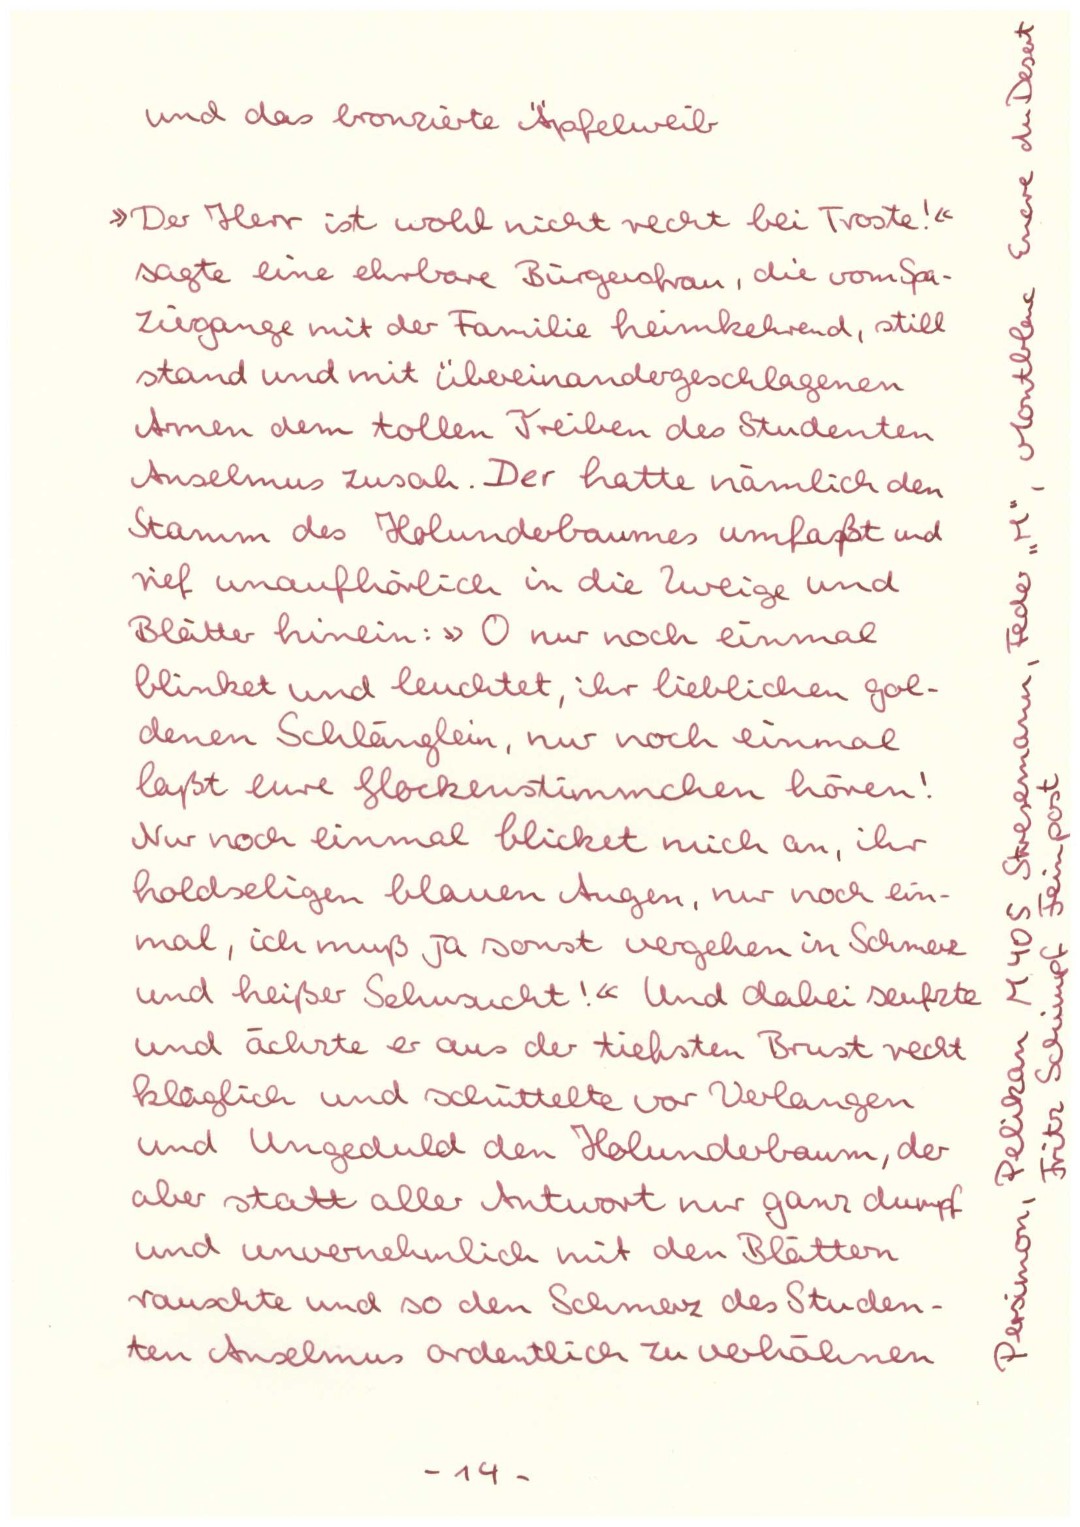 und das bronzierte Äpfelweib
»Der Herr ist wohl nicht recht bei Troste!«
sagte eine ehrbare Bürgersfrau, die vom Spa-
ziergange mit der Familie heimkehrend, still
stand und mit übereinandergeschlagenen
Armen dem tollen Treiben des Studenten
Anselmus zusah. Der hatte nämlich den
Stamm des Holunderbaumes umfaßt und
rief unaufhörlich in die Zweige und
Blätter hinein: » O nur noch einmal
blinket und leuchtet, ihr lieblichen gol-
denen Schlänglein, nur noch einmal
laßt eure Glockenstimmchen hören!
Nur noch einmal blicket mich an, ihr
holdseligen blauen Augen, nur noch ein-
mal, ich muß ja sonst vergehen in Schmerz
und heißer Sehnsucht!« Und dabei seufzte
und ächzte er aus der tiefsten Brust recht
kläglich und schüttelte vor Verlangen
und Ungeduld den Holunderbaum, der
aber statt aller Antwort nur ganz dumpf
und unvernehmlich mit den Blättern
rauschte und so den Schmerz des Studen-
ten Anselmus ordentlich zu verhöhnen
- 14 -
Persimon, Pelikan M 405 Stresemann, Feder „M“, Montblanc Encre du Desert
Fritz Schimpf Feinpost